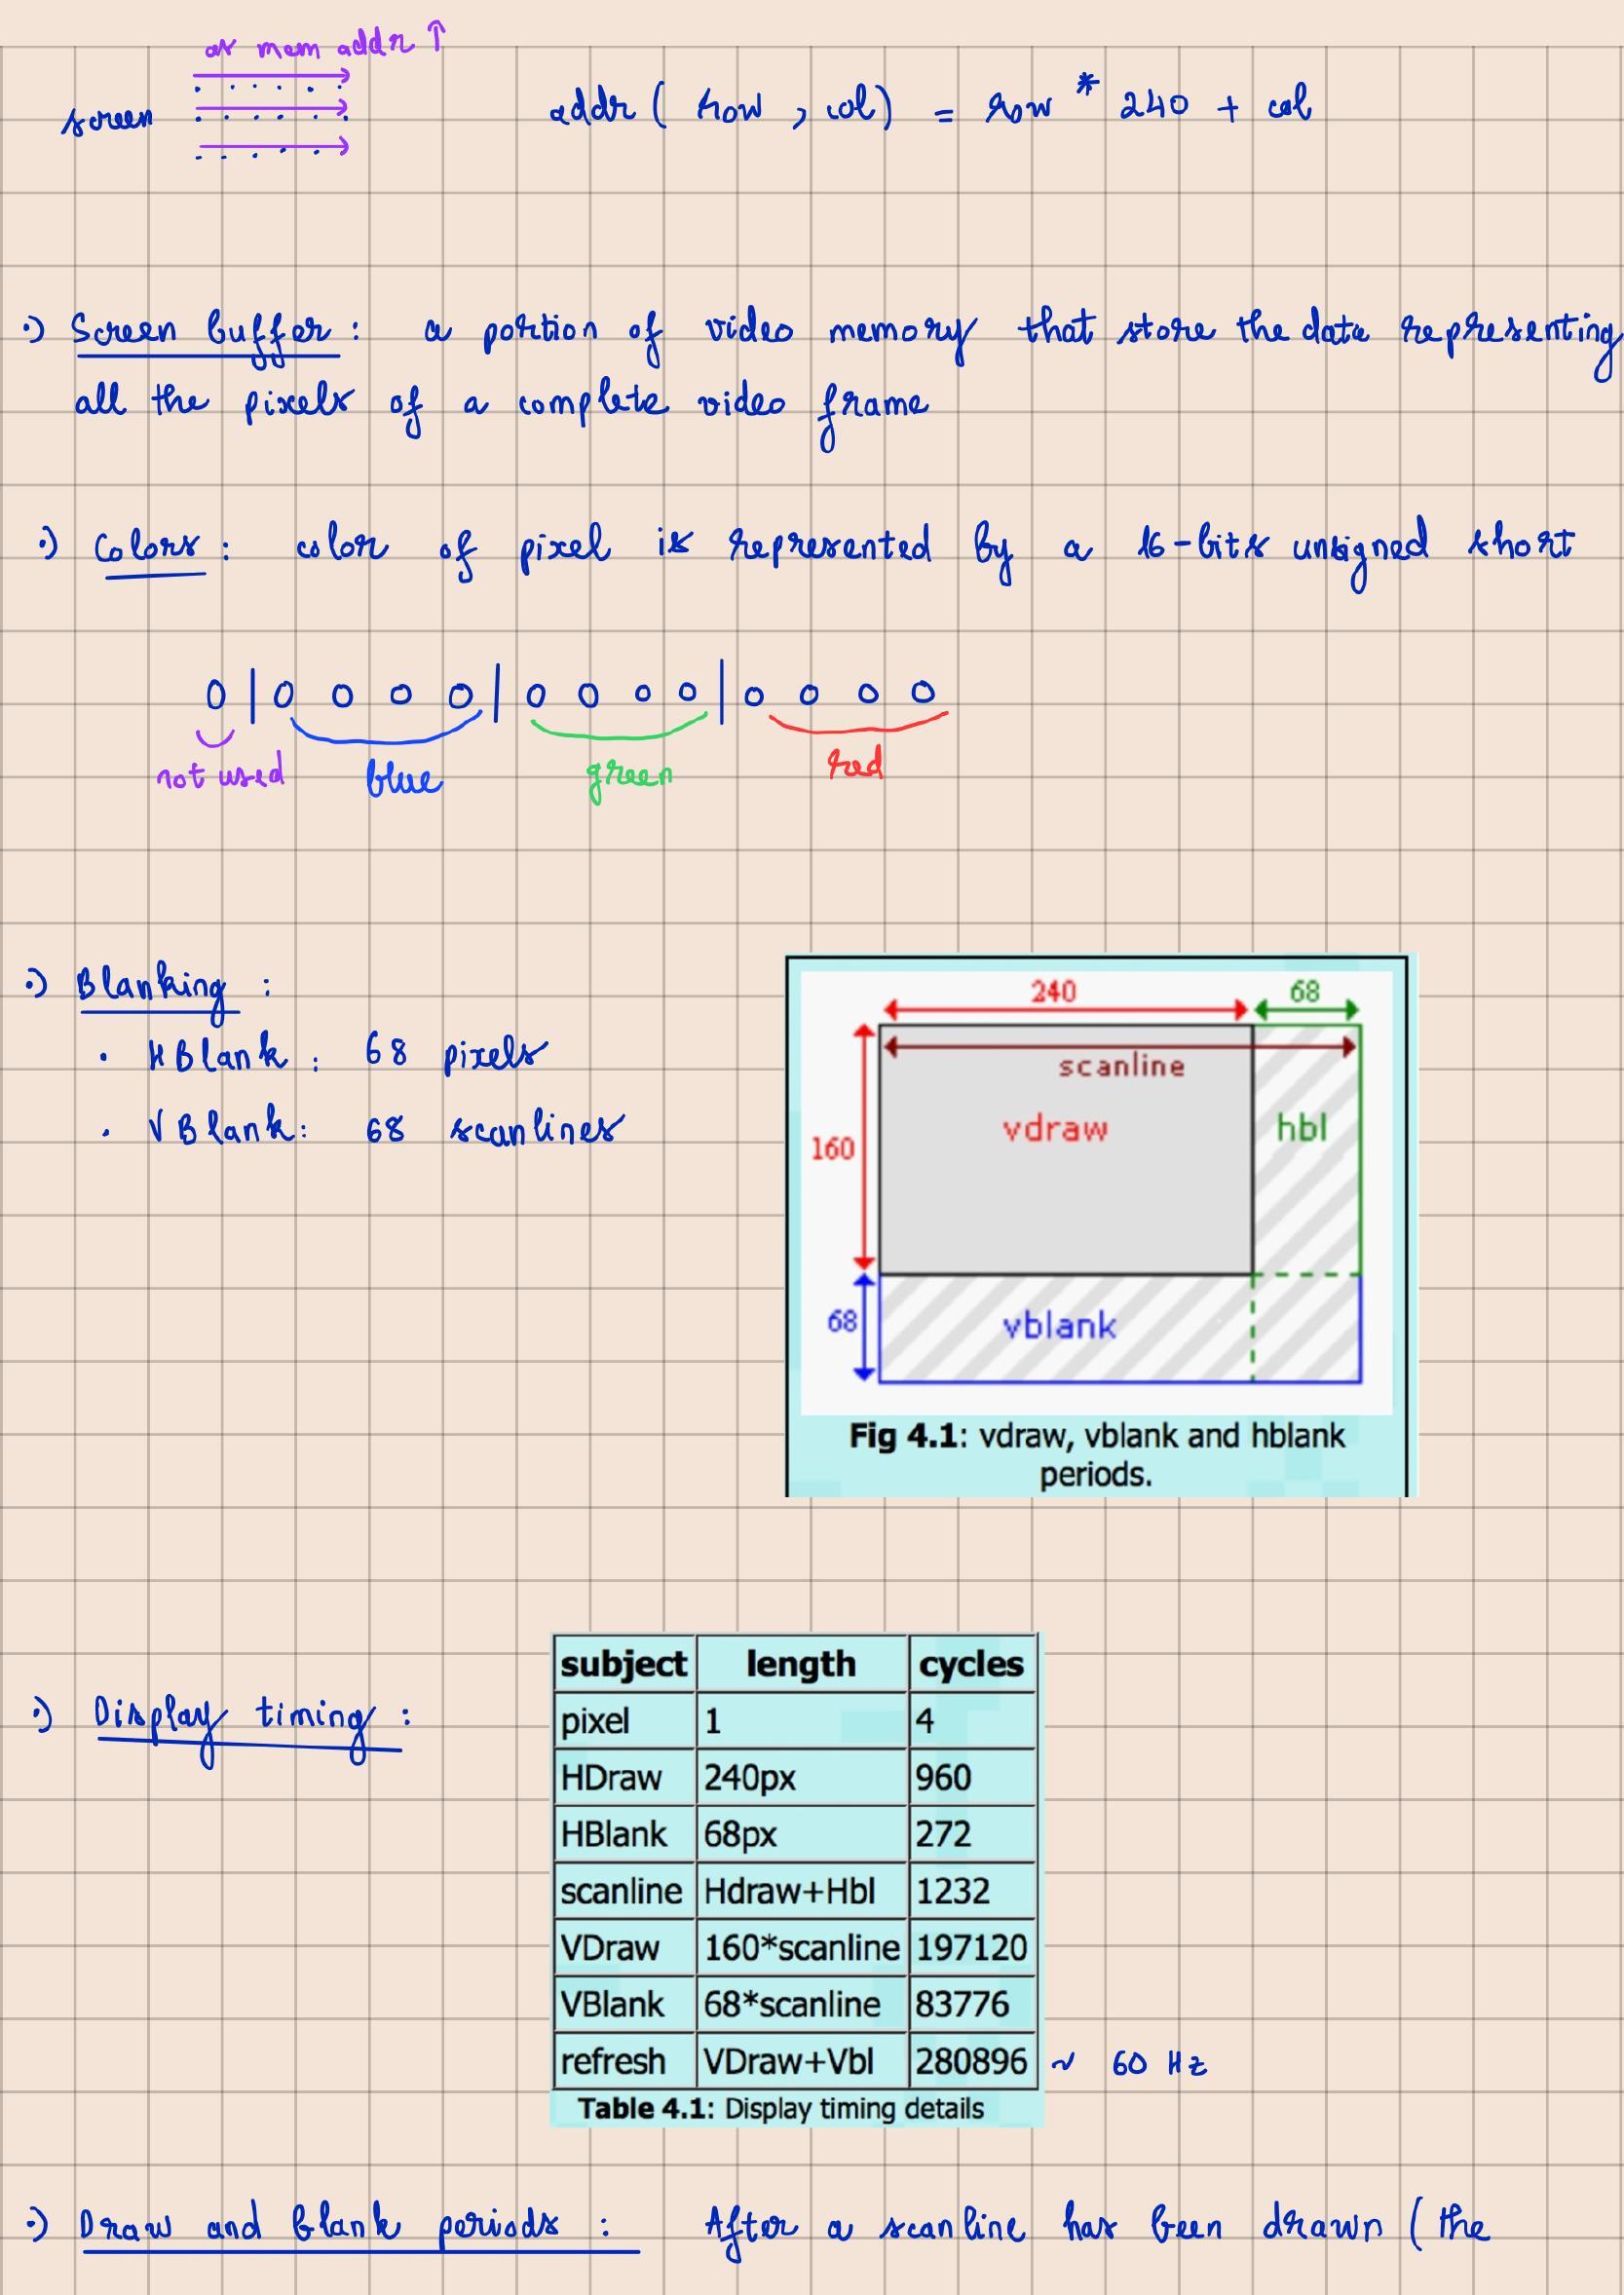 as mem addr ↑
screen
addr ( row , col ) = row * 240 + col
·) Screen buffer : a portion of video memory that store the data representing
all the pixels of a complete video frame
·) Colors : color of pixel is represented by a 16-bits unsigned short
0 | 0 0 0 0 | 0 0 0 0 | 0 0 0 0
not used blue green red
·) Blanking :
· HBlank : 68 pixels
· VBlank : 68 scanlines
240 68
scanline
vdraw hbl
160
68 vblank
Fig 4.1: vdraw, vblank and hblank
periods.
·) Display timing :
subject length cycles
pixel 1 4
HDraw 240px 960
HBlank 68px 272
scanline Hdraw+Hbl 1232
VDraw 160*scanline 197120
VBlank 68*scanline 83776
refresh VDraw+Vbl 280896 ~ 60 Hz
Table 4.1: Display timing details
·) Draw and blank periods : After a scanline has been drawn ( the